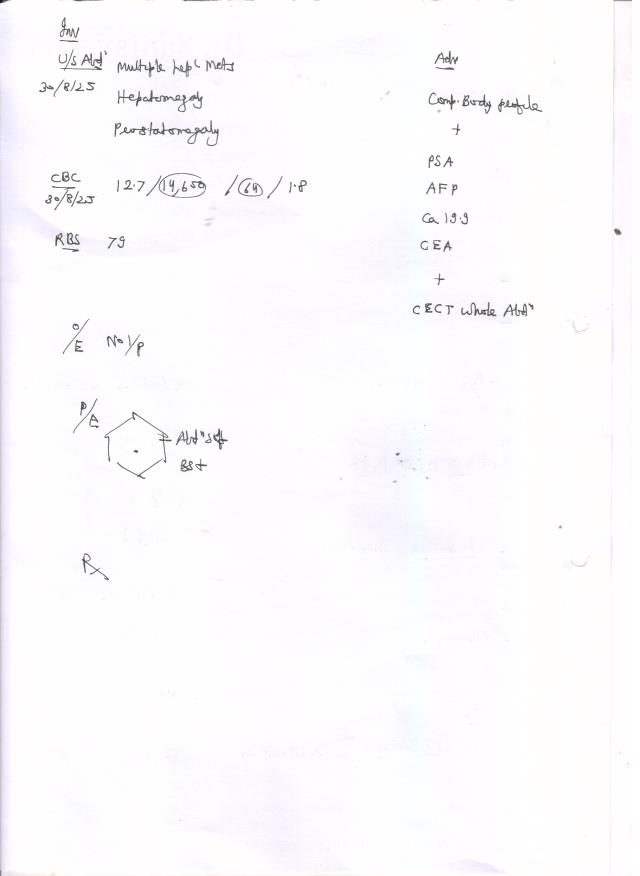 Inv
U/S Abdn Multiple Hepc Mets
30/8/25
Hepatomegaly
Prostatomegaly
CBC 12.7 / 14,650 / 64 / 1.8
30/8/25
RBS 79
O/E No I/P
P/A Abdn soft
BS+
Rx
Adv
Comp. Body profile
+
PSA
AFP
Ca 19.9
CEA
+
CECT whole Abdn